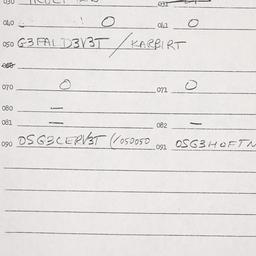 030 031
040 O 041 O
050 G3FALD3V3T / KARBIRT
070 O 071 O
080 –
081 – 082 –
090 DSG3CERV3T (1050050 091 DSG3HOFTN